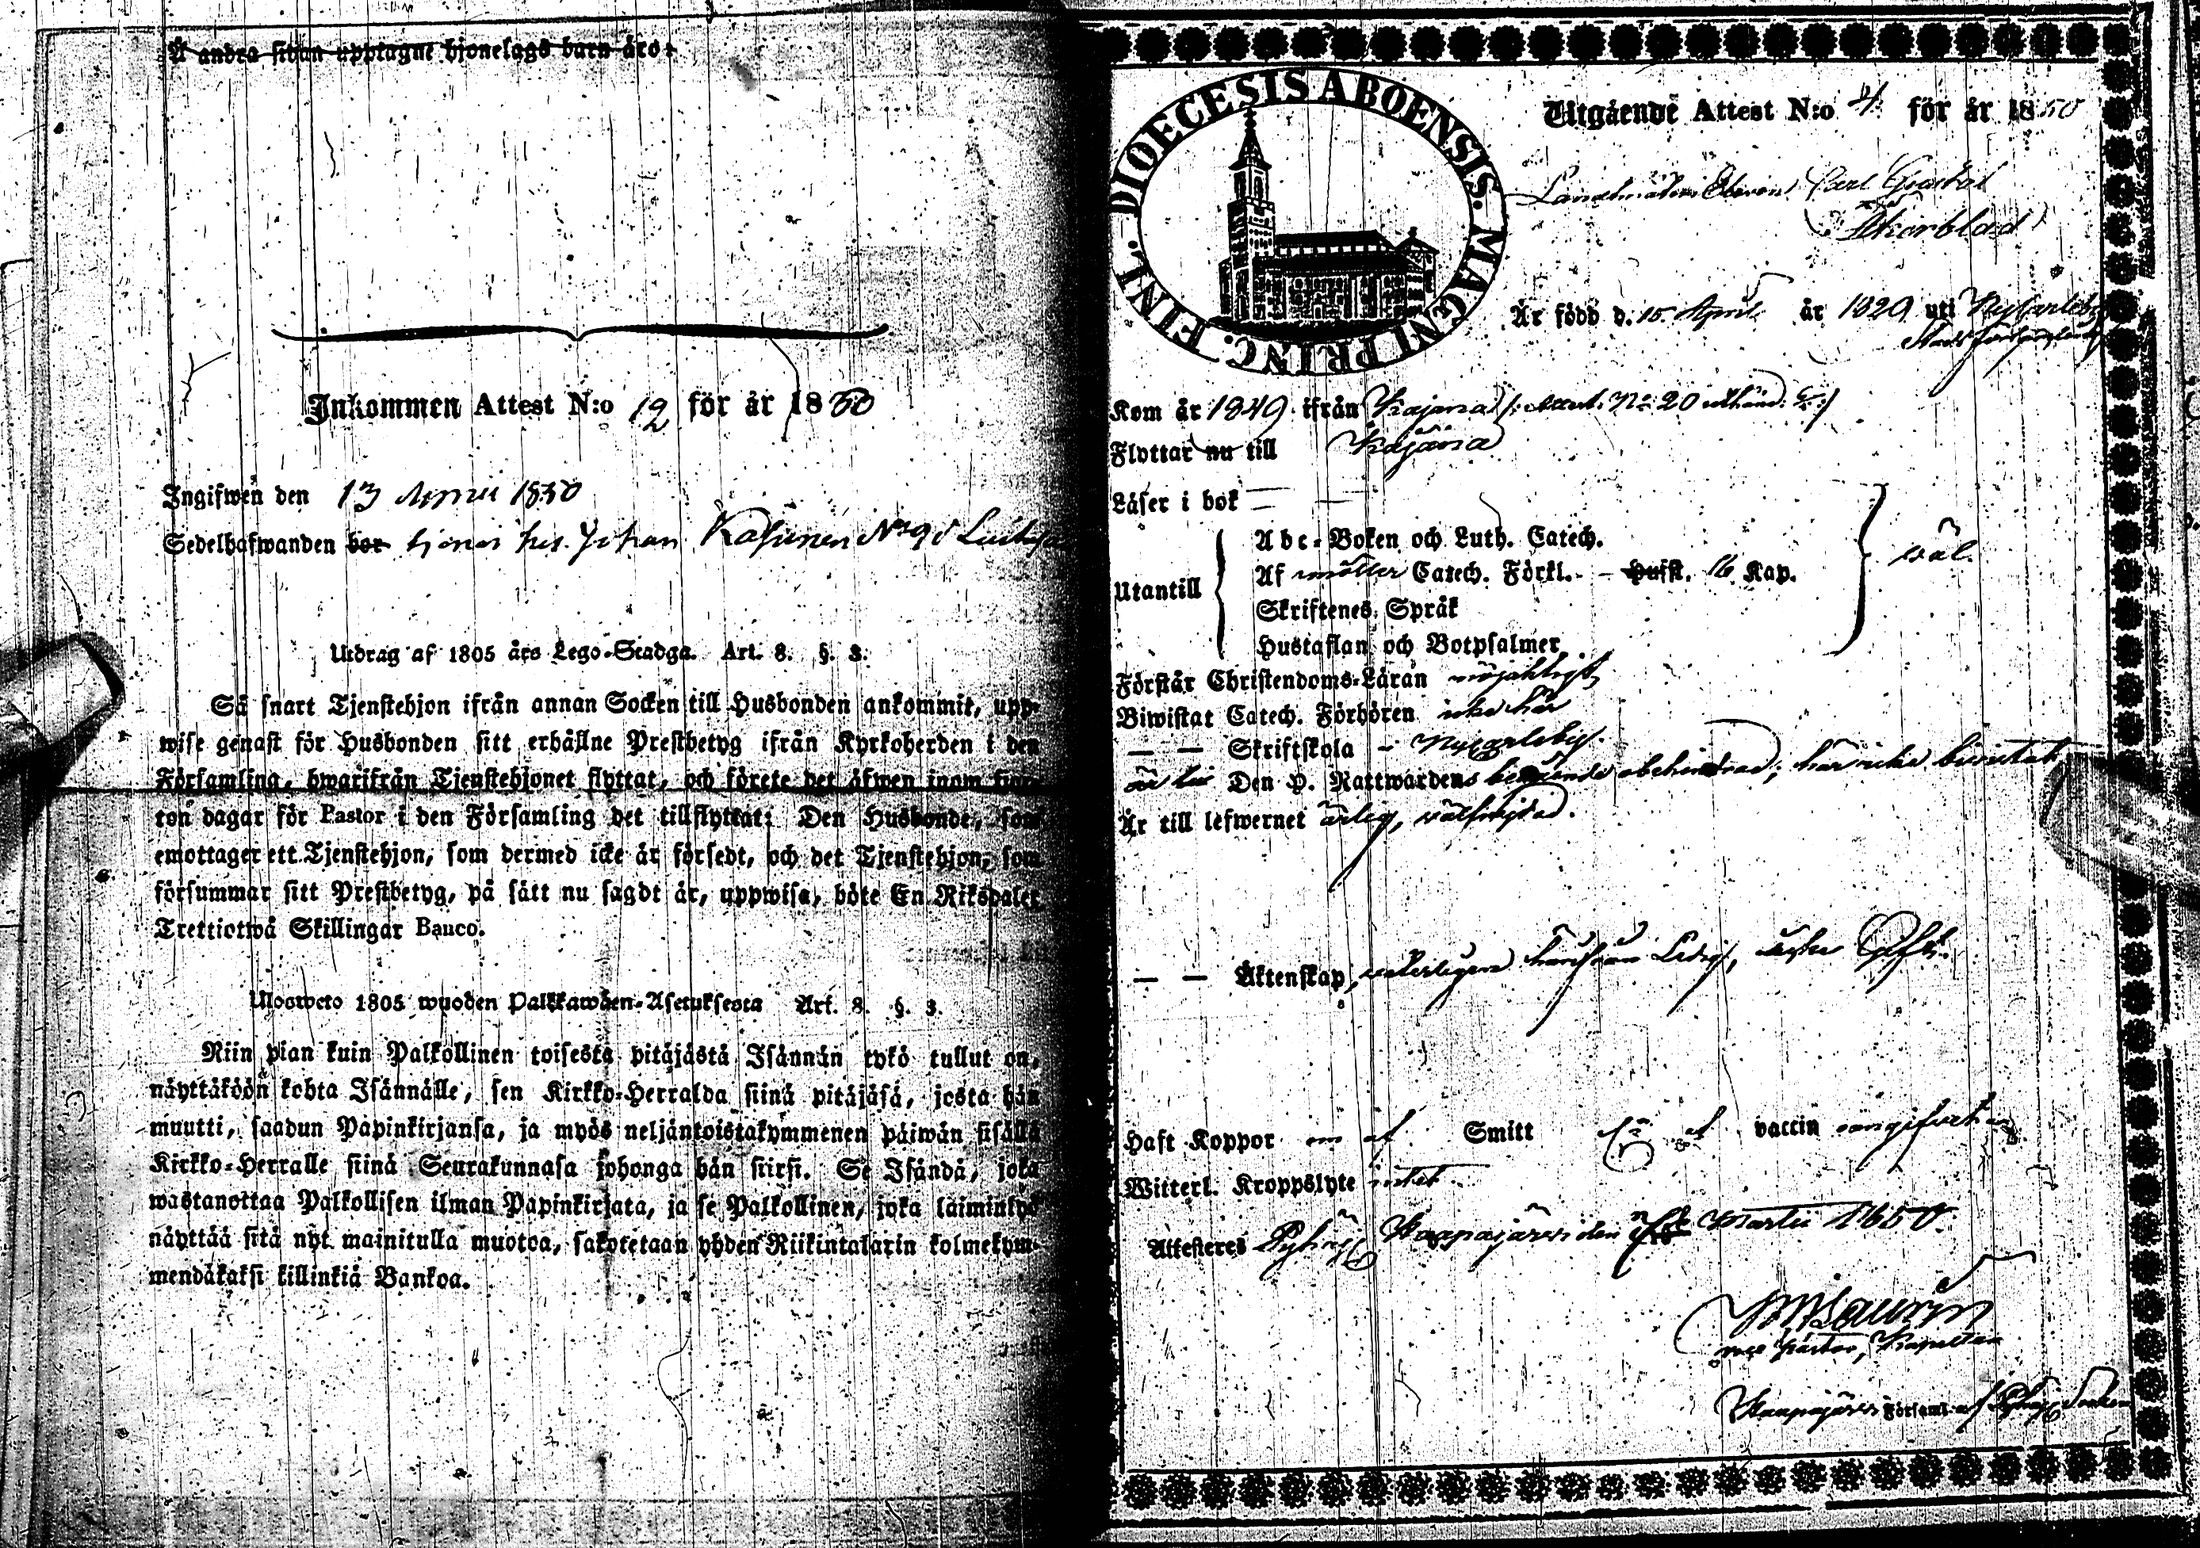 Å andra sidan upptagne hjonelags barn äro:
Inkommen Attest N:o 12 för år 1850
Ingifwen den 13 April 1850
Sedelhafwanden bor hos Johan N:o 9
Utdrag af 1805 års Lego-Stadga. Art. 8. §. 3.
Så snart Tjenstehjon ifrån annan Socken till Husbonden ankommit, upp-
wise genast för Husbonden sitt erhållne Prestbetyg ifrån Kyrkoherden i den
Församling, hwarifrån Tjenstehjonet flyttat, och förete det äfwen inom fjor-
ton dagar för Pastor i den Församling det tillflyttat: Den Husbonde, som
emottager ett Tjenstehjon, som dermed icke är försedt, och det Tjenstehjon, som
försummar sitt Prestbetyg, på sätt nu sagdt är, uppwisa, böte En Riksdaler
Trettiotwå Skillingar Banco.
Ulosweto 1805 wuoden Palkkawäen-Asetuksesta Art. 8. §. 3.
Niin pian kuin Palkollinen toisesta pitäjästä Isännän tykö tullut on,
näyttäköön kohta Isännälle, sen Kirkko-Herralda siinä pitäjäsä, josta hän
muutti, saadun Papinkirjansa, ja myös neljäntoistakymmenen päiwän sisällä
Kirkko-Herralle siinä Seurakunnasa johonga hän siirsi. Se Isändä, joka
wastanottaa Palkollisen ilman Papinkirjata, ja se Palkollinen, joka laiminlyö
näyttää sitä nyt mainitulla muotoa, sakotetaan yhden Riikintalarin kolmekym-
mendäkaksi killinkiä Bankoa.
DIOECESIS ABOENSIS. MAGNI PRINC. FINL.
Utgående Attest N:o 4 för år 1850
Landtmäteri Eleven Carl Gustaf
Skorblad
Är född d. 15 April år 1829 uti Nycarleby
Stads församling
Kom år 1849 ifrån Kajana /: Attest N:o 20
Flyttar nu till Kajana
Läser i bok —
Utantill
Abc-Boken och Luth. Catech.
Af möller Catech. Förkl. — Hufst. 16 Kap.
Skriftenes Språk
Hustaflan och Botpsalmer
väl.
Förstår Christendoms-Läran nöjaktigt
Biwistat Catech. Förhören icke här
— — Skriftskola i Nycarleby.
är till Den H. Nattwardens begående obehindrad; här icke biwistat
Är till lefwernet ärlig, välfrejdad.
— — Äktenskap, ledig,
Haft Koppor om ej Smitt ej vaccin
Witterl. Kroppslyte intet
Attesteres Pyhäj. Haapajärvi den Martii 1850.
Laurin
vice Pastor, Kapellan
Haapajärvi Församl. af Pyhäj. Socken